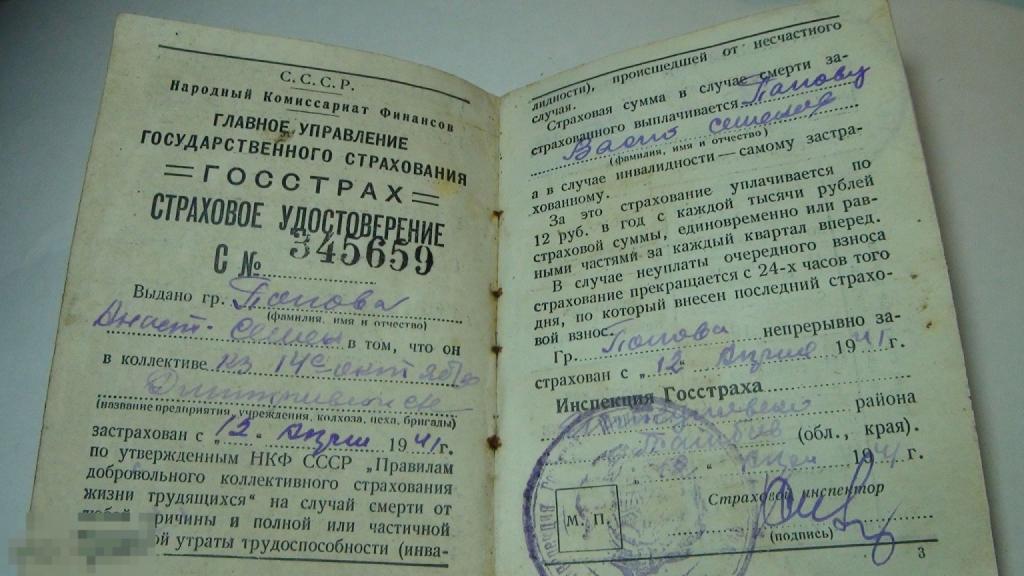 С.С.С.Р.
Народный Комиссариат Финансов
ГЛАВНОЕ УПРАВЛЕНИЕ
ГОСУДАРСТВЕННОГО СТРАХОВАНИЯ
ГОССТРАХ
СТРАХОВОЕ УДОСТОВЕРЕНИЕ
С № 345659
Выдано гр. Попова
(фамилия, имя и отчество)
Анаст. Семен в том, что он
в коллективе кз 14
(название предприятия, учреждения, колхоза, цеха, бригады)
застрахован с „12" апреля 1941 г.
по утвержденным НКФ СССР „Правилам
добровольного коллективного страхования
жизни трудящихся" на случай смерти от
любой причины и полной или частичной
утраты трудоспособности (инва-
лидности), происшедшей от несчастного
случая.
Страховая сумма в случае смерти за-
страхованного выплачивается Попову
(фамилия, имя и отчество)
а в случае инвалидности — самому застра-
хованному.
За это страхование уплачивается по
12 руб. в год с каждой тысячи рублей
страховой суммы, единовременно или рав-
ными частями за каждый квартал вперед.
В случае неуплаты очередного взноса
страхование прекращается с 24-х часов того
дня, по который внесен последний страхо-
вой взнос.
Гр. Попова непрерывно за-
страхован с „12 апреля 1941 г.
Инспекция Госстраха
района
(обл., края).
1941 г.
Страховой инспектор
М. П.
(подпись)
3